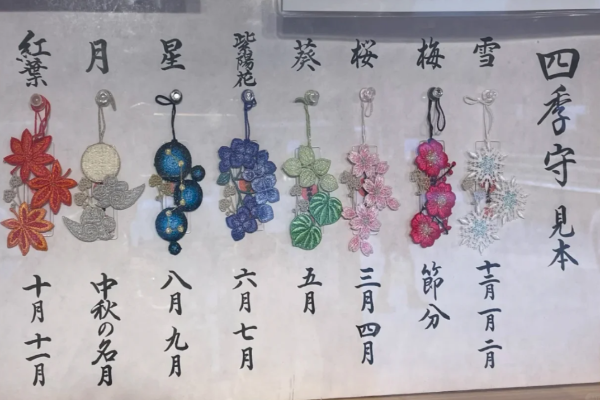 四季守 見本
雪
十二月 一月 二月
梅
節分
桜
三月 四月
葵
五月
紫陽花
六月 七月
星
八月 九月
月
中秋の名月
紅葉
十月 十一月